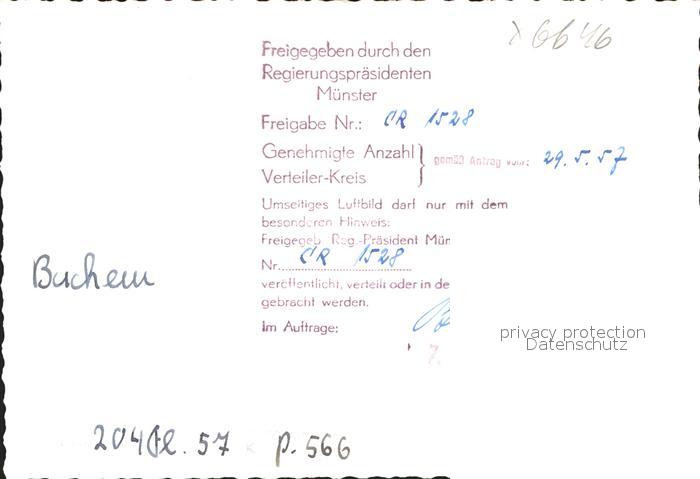 6646
Freigegeben durch den
Regierungspräsidenten
Münster
Freigabe Nr.: CR 1528
Genehmigte Anzahl
Verteiler-Kreis
gemäß Antrag vom: 29. 5. 57
Umseitiges Luftbild darf nur mit dem
besonderen Hinweis:
Freigegeb. Reg.-Präsident Mün
Nr. CR 1528
veröffentlicht, verteilt oder in de
gebracht werden.
Im Auftrage:
7.
Buchem
privacy protection
Datenschutz
204 57 p. 566